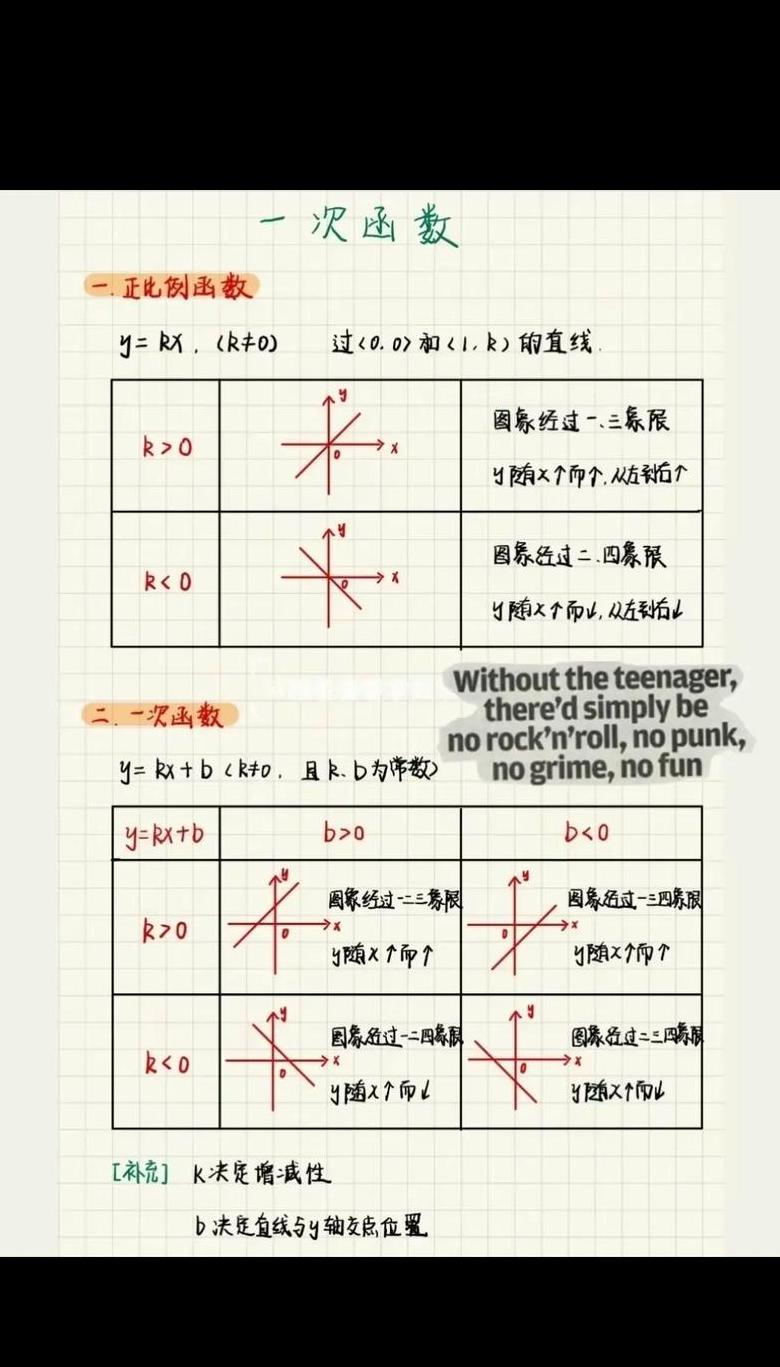 一次函数
一.正比例函数
y=kx,(k≠0) 过(0.0)和(1.k)的直线.
k>0
y
x
0
图象经过一.三象限
y随x↑而↑,从左到右↑
k<0
y
x
0
图象经过二.四象限
y随x↑而↓,从左到右↓
Without the teenager,
there'd simply be
no rock'n'roll, no punk,
no grime, no fun
二.一次函数
y=kx+b(k≠0.且k、b为常数)
y=kx+b
b>0
b<0
k>0
y
x
0
图象经过一二三象限
y随x↑而↑
y
x
0
图象经过一三四象限
y随x↑而↑
k<0
y
x
0
图象经过一二四象限
y随x↑而↓
y
x
0
图象经过二三四象限
y随x↑而↓
[补充] k决定增减性
b决定直线与y轴交点位置